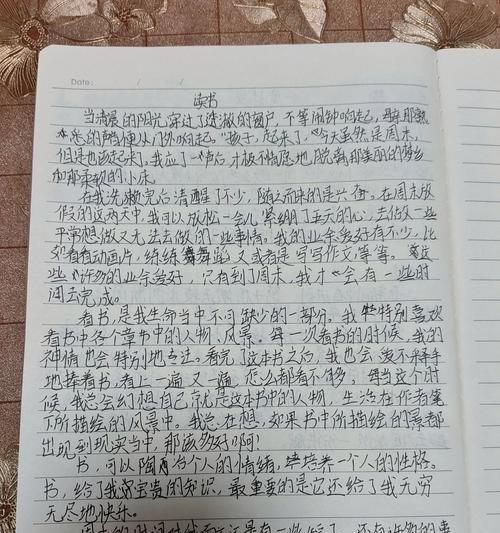 Date: / /
读书
当清晨的阳光穿过了透澈的窗户,不等闹钟响起,母亲那熟
悉的声音便从门外响起。"孩子,起来了,今天虽然是周末,
但是也该起来了。我应了一声后才极不情愿地脱离那美丽的梦乡
和那柔软的小床。
在我洗漱完后清醒了不少,随之而来的是兴奋。在周末放
假的这两天中,我可以放松一会儿紧绷了五天的心,去做一些
平常想做又无法去做的一些事情。我的业余爱好有不少,比
如看看动画片,练练舞蹈又或者是写写作文,等等。这
些许多的业余爱好,只有到了周末,我才会有一些时
间去完成。
看书,是我生命当中不可缺少的一部分。我特别喜欢
看书中各个章节中的人物、风景。每一次看书的时候,我的
神情也会特别地专注。看完了这本书之后,我也会爱不释手
地捧着书,看上一遍又一遍,怎么都看不够。每当这个时
候,我总会幻想自己就是这本书中的人物,生活在作者笔
下所描绘的风景中。我总在想,如果书中所描绘的景都
出现到现实当中,那该多好啊!
书,可以陶冶个人的情绪,培养一个人的性格。
书,给了我宝贵的知识,最重要的是它还给了我无穷
无尽地快乐。